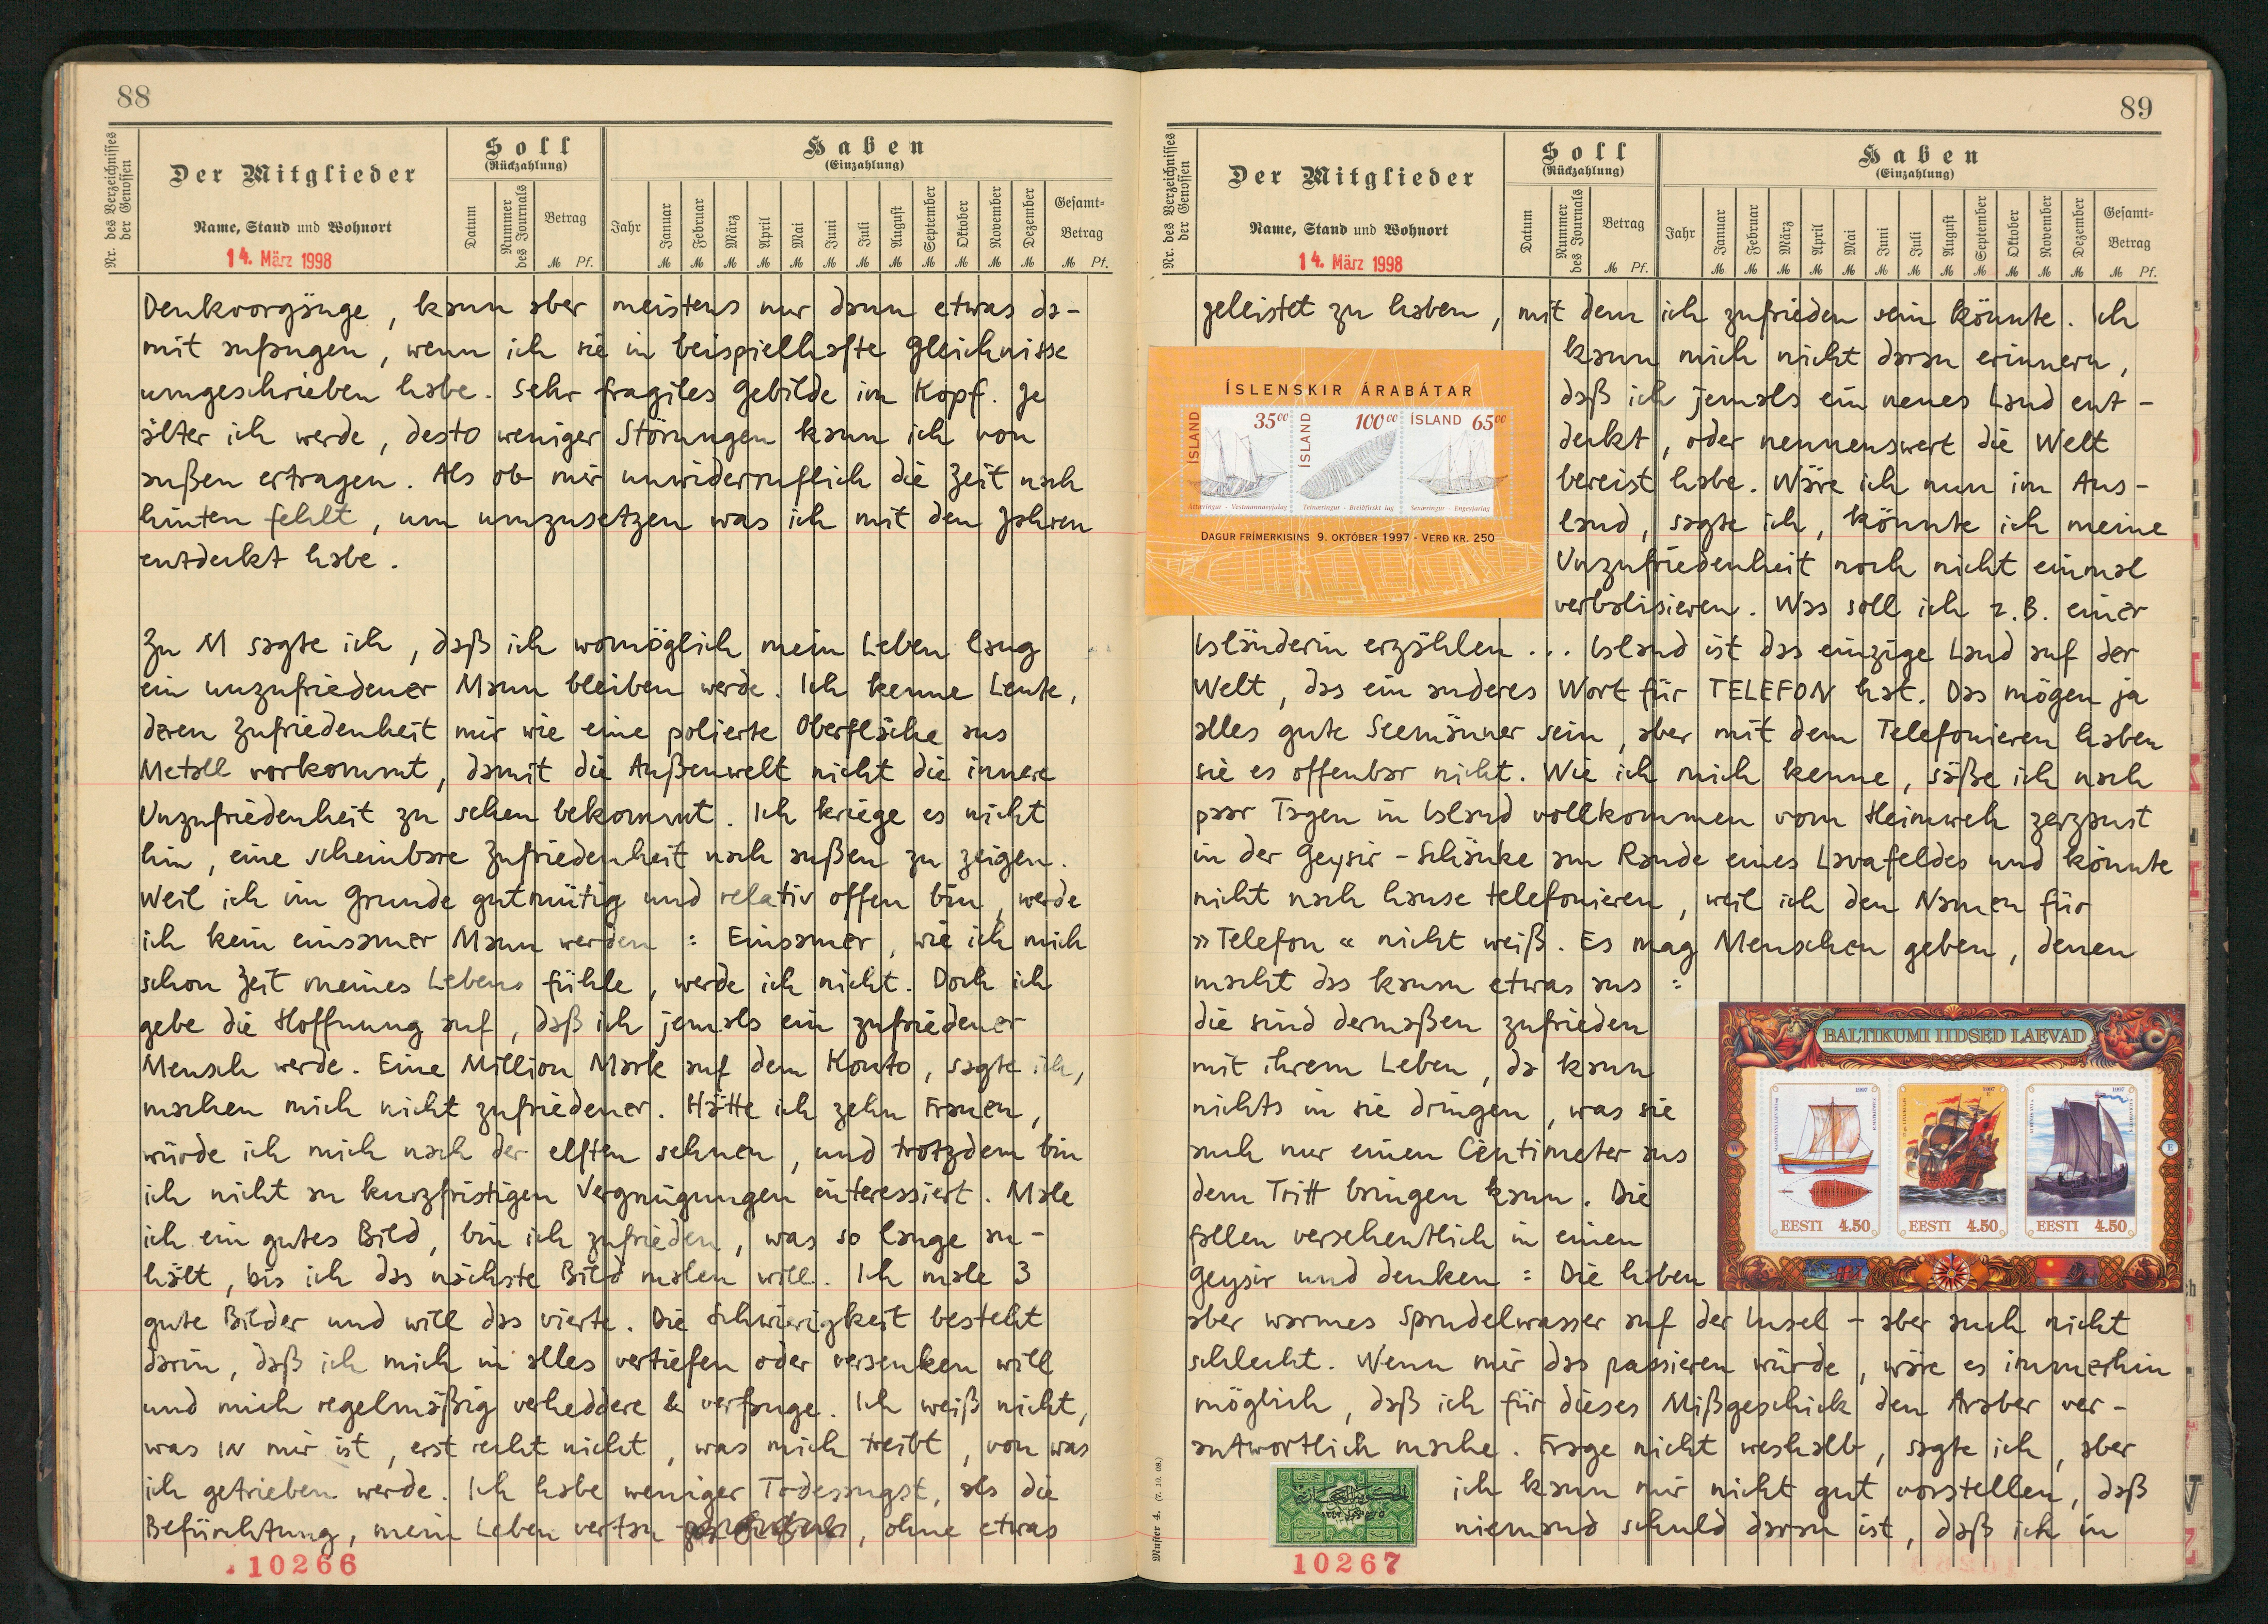 88
Nr. des Verzeichnisses der Genossen
Der Mitglieder
Name, Stand und Wohnort
14. März 1998
Soll
(Rückzahlung)
Datum
Nummer des Journals
Betrag
M Pf.
Haben
(Einzahlung)
Jahr
Januar Februar März April Mai Juni Juli August September Oktober November Dezember
Gesamt-
Betrag
M M M M M M M M M M M M M Pf.
Denkvorgänge, kann aber meistens nur dann etwas da-
mit anfangen, wenn ich sie in beispielhafte Gleichnisse
umgeschrieben habe. Sehr fragiles Gebilde im Kopf. Je
älter ich werde, desto weniger Störungen kann ich von
außen ertragen. Als ob mir unwiderruflich die Zeit nach
hinten fehlt, um umzusetzen was ich mit den Jahren
entdeckt habe.
Zu M sagte ich, daß ich womöglich mein Leben lang
ein unzufriedener Mann bleiben werde. Ich kenne Leute,
deren Zufriedenheit mir wie eine polierte Oberfläche aus
Metall vorkommt, damit die Außenwelt nicht die innere
Unzufriedenheit zu sehen bekommt. Ich kriege es nicht
hin, eine scheinbare Zufriedenheit nach außen zu zeigen.
Weil ich im Grunde gutmütig und relativ offen bin, werde
ich kein einsamer Mann werden : Einsamer, wie ich mich
schon Zeit meines Lebens fühle, werde ich nicht. Doch ich
gebe die Hoffnung auf, daß ich jemals ein zufriedener
Mensch werde. Eine Million Mark auf dem Konto, sagte ich,
machen mich nicht zufriedener. Hätte ich zehn Frauen,
würde ich mich nach der elften sehnen, und trotzdem bin
ich nicht an kurzfristigen Vergnügungen interessiert. Male
ich ein gutes Bild, bin ich zufrieden, was so lange an-
hält, bis ich das nächste Bild malen will. Ich male 3
gute Bilder und will das vierte. Die Schwierigkeit besteht
darin, daß ich mich in alles vertiefen oder versenken will
und mich regelmäßig verheddere & verfange. Ich weiß nicht,
was IN mir ist, erst recht nicht, was mich treibt, von was
ich getrieben werde. Ich habe weniger Todesangst, als die
Befürchtung, mein Leben vertan , ohne etwas
10266
89
Nr. des Verzeichnisses der Genossen
Der Mitglieder
Name, Stand und Wohnort
14. März 1998
Soll
(Rückzahlung)
Datum
Nummer des Journals
Betrag
M Pf.
Haben
(Einzahlung)
Jahr
Januar Februar März April Mai Juni Juli August September Oktober November Dezember
Gesamt-
Betrag
M M M M M M M M M M M M M Pf.
geleistet zu haben, mit dem ich zufrieden sein könnte. Ich
kann mich nicht daran erinnern,
daß ich jemals ein neues Land ent-
deckt, oder nennenswert die Welt
bereist habe. Wäre ich nun im Aus-
land, sagte ich, könnte ich meine
Unzufriedenheit noch nicht einmal
verbalisieren. Was soll ich z.B. einer
ÍSLENSKIR ÁRABÁTAR
ÍSLAND 35⁰⁰
ÍSLAND 100⁰⁰
ÍSLAND 65⁰⁰
Áttæringur - Vestmannaeyjalag
Teinæringur - Breiðfirskt lag
Sexæringur - Engeyjarlag
DAGUR FRÍMERKISINS 9. OKTÓBER 1997 - VERÐ KR. 250
Isländerin erzählen ... Island ist das einzige Land auf der
Welt, das ein anderes Wort für TELEFON hat. Das mögen ja
alles gute Seemänner sein, aber mit dem Telefonieren haben
sie es offenbar nicht. Wie ich mich kenne, säße ich nach
paar Tagen in Island vollkommen vom Heimweh zerzaust
in der Geysir-Schänke am Rande eines Lavafeldes und könnte
nicht nach hause telefonieren, weil ich den Namen für
»Telefon« nicht weiß. Es mag Menschen geben, denen
macht das kaum etwas aus :
die sind dermaßen zufrieden
mit ihrem Leben, da kann
nichts in sie dringen, was sie
auch nur einen Centimeter aus
dem Tritt bringen kann. Die
fallen versehentlich in einen
Geysir und denken : Die haben
BALTIKUMI IIDSED LAEVAD
W
E
1997
1997
1997
EESTI 4.50
EESTI 4.50
EESTI 4.50
aber warmes Sprudelwasser auf der Insel – aber auch nicht
schlecht. Wenn mir das passieren würde, wäre es immerhin
möglich, daß ich für dieses Mißgeschick den Araber ver-
antwortlich mache. Frage nicht weshalb, sagte ich, aber
ich kann mir nicht gut vorstellen, daß
niemand schuld daran ist, daß ich in
10267
Muster 4. (7. 10. 08.)